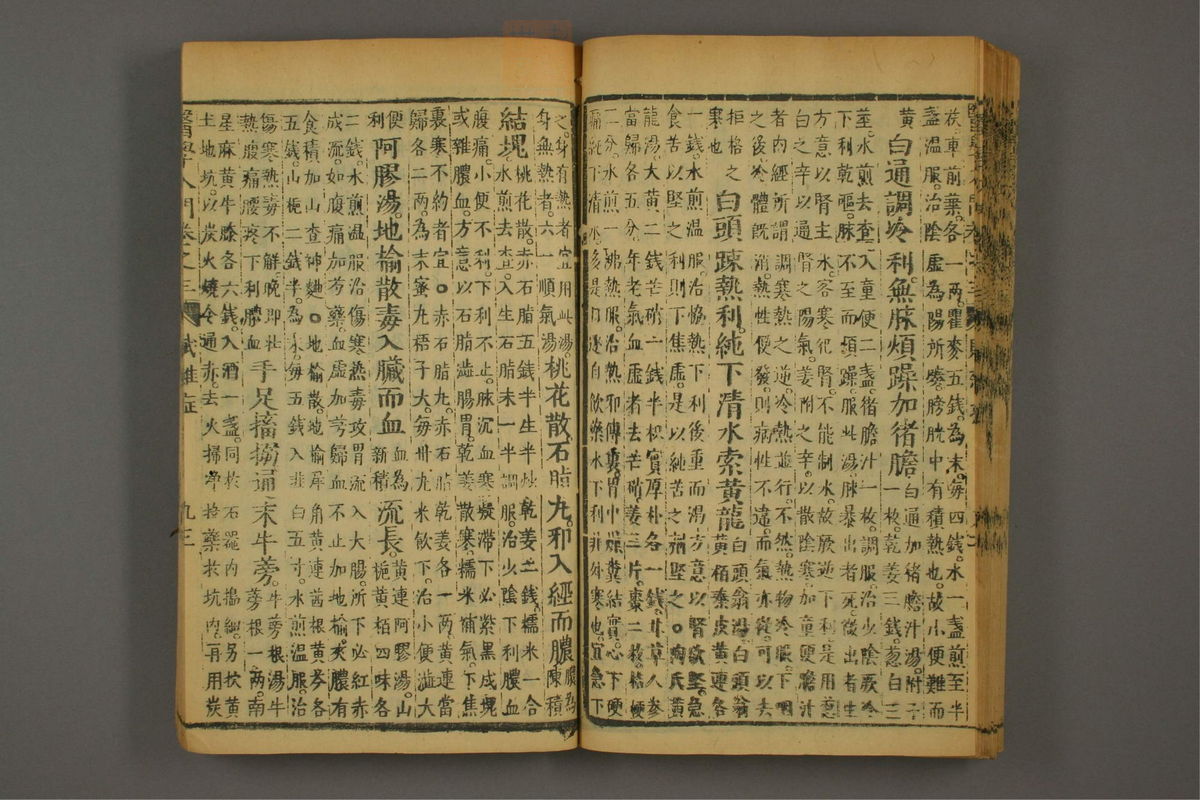 茯車前葉各一兩瞿麥五錢為末每四錢水一盞煎至半
盞溫服治陰虛為陽所勝膀胱中有積熱也故小便難而
黃白通調疼利無脉煩躁加猪膽白通加猪膽汁湯附子
一枚乾姜三錢葱白三
莖水煎去查入童便二盞猪膽汁一枚調服治少陰厥冷
下利乾嘔脉不至而煩躁服此湯脉暴出者死微出者生
方意以腎主水客寒犯腎不能制水故厥逆下利是用葱
白之辛以通腎之陽氣姜附之辛以散陰寒加童便膽汁
者內經所謂調寒熱之逆冷熱並行不然熱物冷服下咽
之後冷體既消熱性便發則病性不違而氣亦從可以去
拒格之
寒也白頭踈熱利純下清水索黃龍白頭翁湯白頭翁
黃栢秦皮黃連各
一錢水煎溫服治恊熱下利後重而渴方意以腎欲堅急
食苦以堅之利則下焦虛是以純苦之劑堅之〇陶氏黃
龍湯大黃二錢芒硝一錢半枳實厚朴各一錢甘草人參
當歸各五分年老氣血虛者去芒硝姜三片棗二枚桔梗
二分水煎一沸熱服治熱邪傳裏胃中燥糞結實心下硬
痛純下清水
之身有熱者宜用此湯
身無熱者六一順氣湯桃花散石脂丸邪入經而膿膿為
陳積
結塊桃花散赤石脂五錢半生半炒乾姜二錢糯米一合
水煎去查入生石脂末一半調服治少陰下利膿血
腹痛小便不利下利不止脉沉血寒凝滯下必紫黑成塊
或雜膿血方意以石脂澁腸胃乾姜散寒糯米補氣下焦
裏寒不約者宜〇赤石脂丸赤石脂乾姜各一兩黃連當
歸各二兩為末蜜丸梧子大每卅丸米飲下治小便澁大
便
利阿膠湯地榆散毒入臟而血血為
新積流長黃連阿膠湯山
梔黃栢四味各
二錢水煎溫服治傷寒熱毒攻胃流入大腸所下必紅赤
成流如腹痛加芍藥血虛加芎歸血不止加地榆夾膿有
食積加山查神麯〇地榆散地榆犀角黃連茜根黃芩各
五錢山梔二錢半為末每五錢入韭白五寸水煎溫服治
傷寒熱毒不解晚即壯
熱腹痛腰疼下利膿血手足搐搦通末牛蒡牛蒡根湯牛
蒡根一兩南
星麻黃牛膝各六錢入酒一盞同於石器內搗細另扙黃
土地坑以炭火燒令通赤去火掃淨捨藥於坑內再用炭
醫學入門卷之三
九三